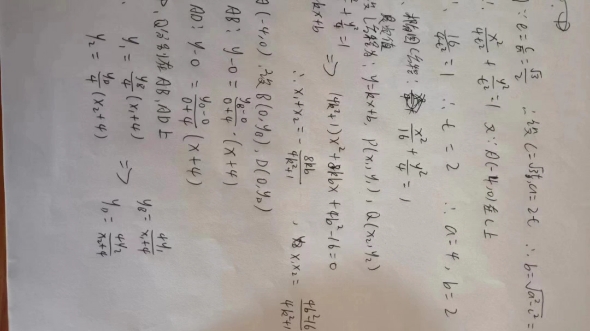 ∵ e = c/a = √3/2 ∴设 c=√3t, a=2t ∴ b=√(a²-c²) =
x²/4t² + y²/t² = 1 又∵ A(-4,0)在C上
16/4t² = 1 ∴ t = 2 ∴ a=4, b=2
椭圆C方程: x²/16 + y²/4 = 1
: y=kx+b, P(x₁,y₁), Q(x₂,y₂)
+ y²/4 = 1
kx+b
⇒ (4k²+1)x²+8kbx+4b²-16=0
∴ x₁+x₂ = - 8kb/4k²+1 , x₁x₂ = 4b²-16/4k²+1
A(-4,0), B(0,y_B), D(0,y_D)
AB: y-0 = y_B-0/0+4 · (x+4)
AD: y-0 = y_D-0/0+4 (x+4)
P、Q分别在AB、AD上
y₁ = y_B/4 (x₁+4) ⇒ y_B = 4y₁/x₁+4
y₂ = y_D/4 (x₂+4) y_D = 4y₂/x₂+4